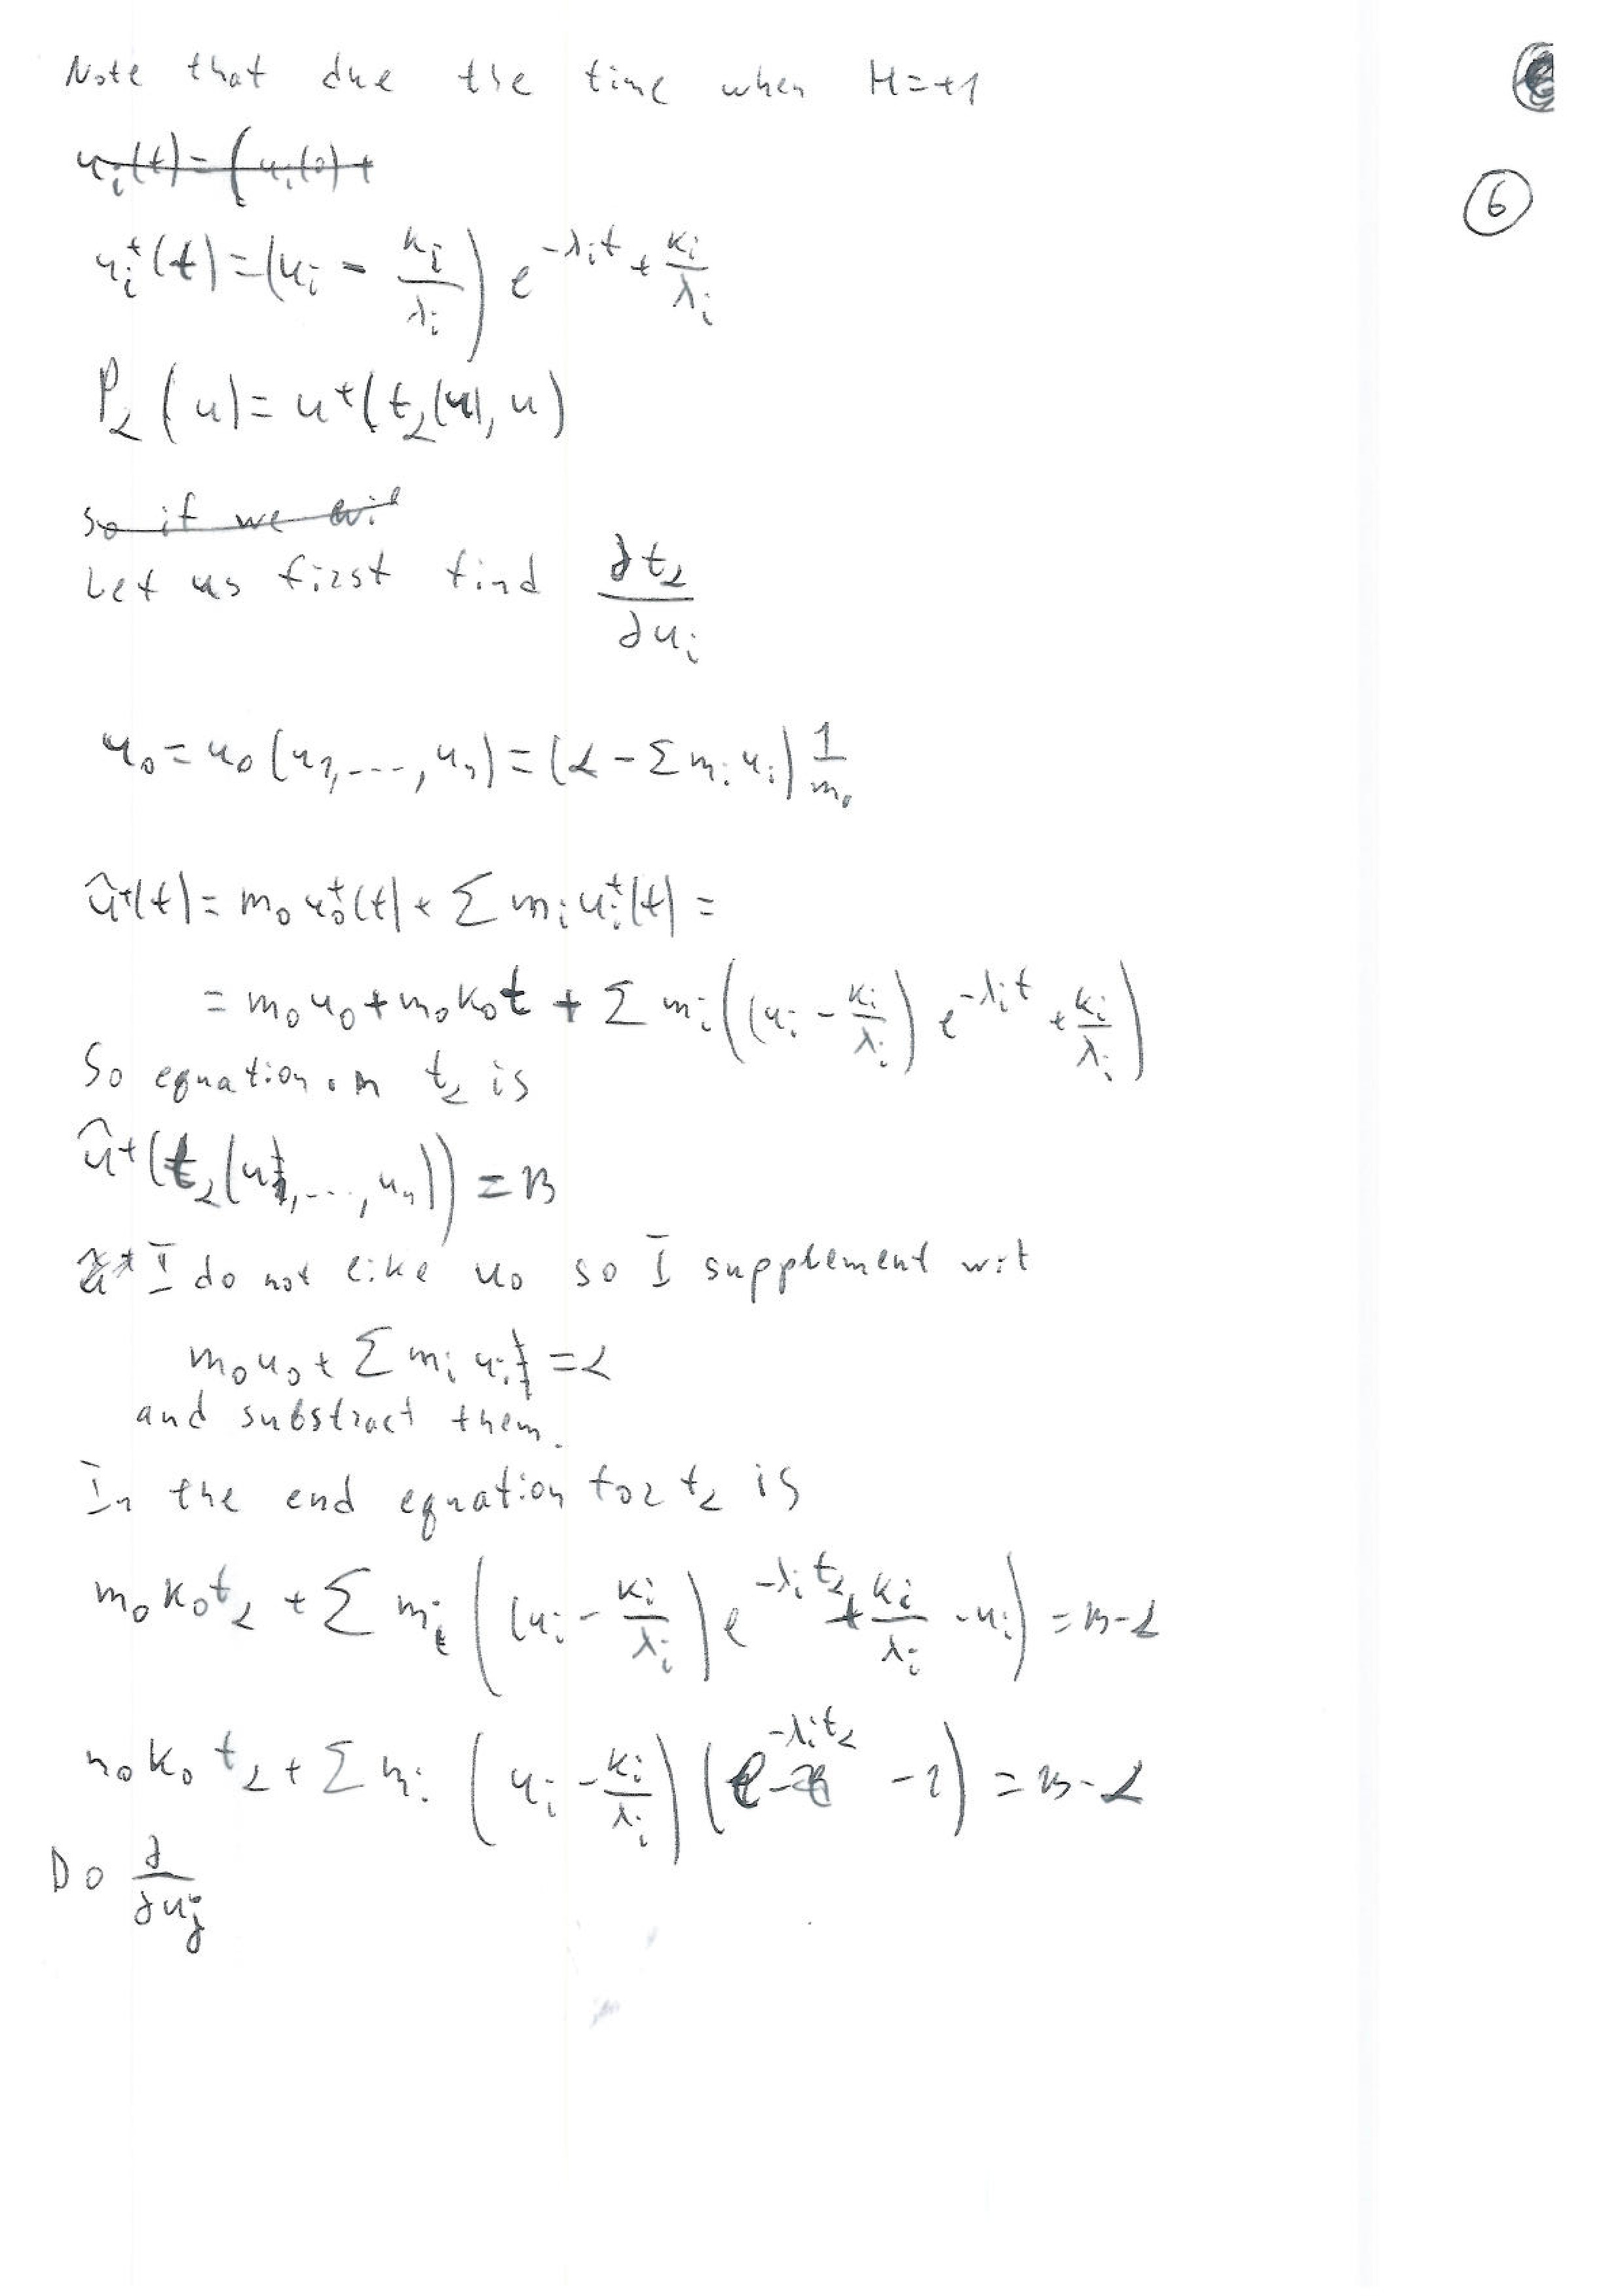 Note that due the time when H=+1
u_i(t)=(u_i(0)+
⑥
u_i^+(t)=(u_i - k_i/λ_i) e^{-λ_i t} + k_i/λ_i
P_α(u)=u^+(t_α(u), u)
so if we
Let us first find ∂t_α/∂u_i
u_0=u_0(u_1,---,u_n)=(α-Σm_i u_i) 1/m_0
û^+(t)=m_0 u_0^+(t)+Σ m_i u_i^+(t)=
=m_0 u_0+m_0 k_0 t + Σ m_i((u_i - k_i/λ_i) e^{-λ_i t} + k_i/λ_i)
So equation on t_α is
û^+(t_α(u_1,...,u_n))=β
I do not like u_0 so I supplement wit
m_0 u_0+Σ m_i u_i=α
and substract them.
In the end equation for t_α is
m_0 k_0 t_α + Σ m_i((u_i - k_i/λ_i) e^{-λ_i t_α} + k_i/λ_i - u_i)=β-α
m_0 k_0 t_α + Σ m_i (u_i - k_i/λ_i)(e^{-λ_i t_α} - 1)=β-α
Do ∂/∂u_j